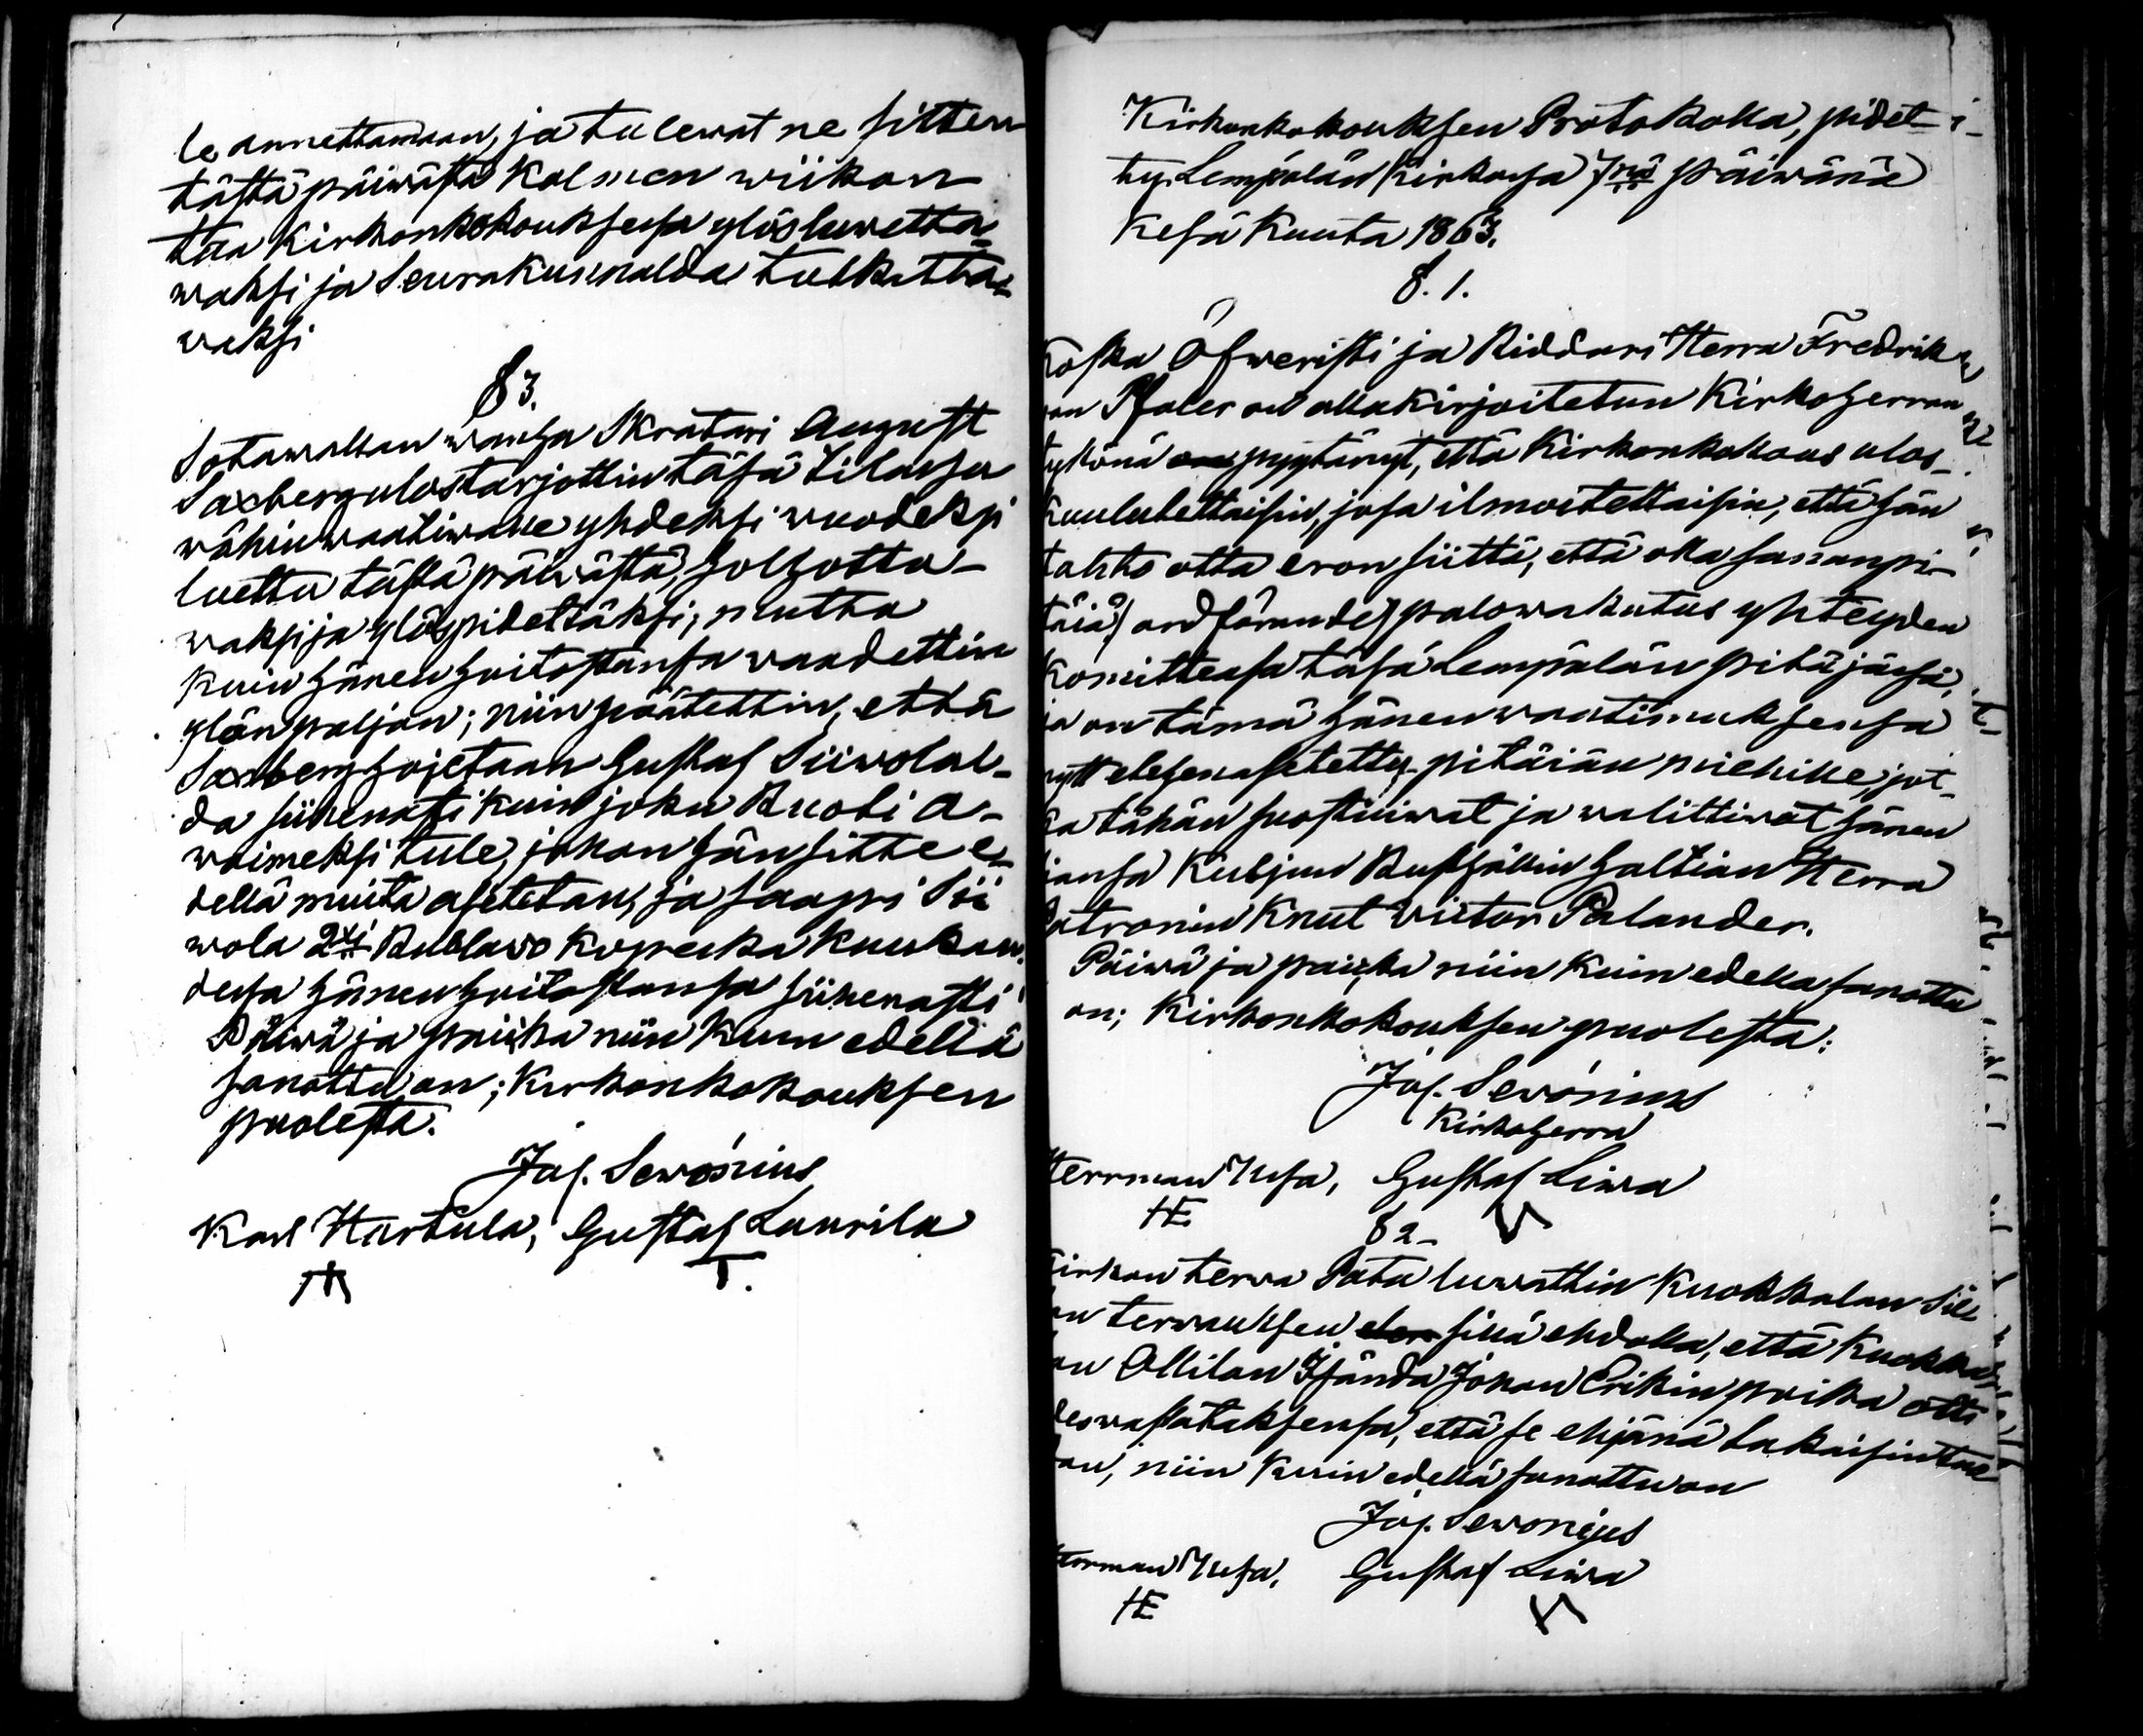 le annettamaan, ja tulewat ne sitten
tästä päiwästä Kolmen wiikon
taa Kirkonkokouksesa ylösluwetta-
waksi ja Seurakunnalda tutkitta-
waksi
§ 3.
Sotawallan wanha Skrätari August
Saxberg ulostarjottin täsä tilaisa
wähin waatiwalle yhdeksi wuodeksi
luettu tästä päiwästä, holhotta-
waksi ja ylöspidettäksi; mutta
kuin hänen hoitostansa waadettin
ylön paljon; niin päätettin, että
Saxberg hojetaan Gustaf Siiwolal-
da siihenasti kuin joku Ruoti a-
woimeksi tule, johon hän sitte e-
dellä muita asetetan, ja saapi Sii
wola 2xi Rublaa 50 kopeika kuukau-
desa hänen hoitostansa siihenasti
Päiwä ja paikka niin kuin edellä
sanottu on; Kirkonkokouksen
puolesta.
Jos. Sewónius
Karl Hartula, Gustaf Laurila
T.
Kirkonkokouksen Protokolla, pidet-
ty Lempälän Kirkosa 7nä päiwänä
Kesä Kuuta 1863.
§. 1.
Koska Öfweristi ja Riddari Herra Fredrik
von Pfaler on allakirjoitetun Kirkoherran
tykönä pyytänyt, että Kirkonkokous ulos-
kuulutettaisin, josa ilmoitettaisin, että hän
tahto otta eron siittä, että olla sananpi-
täiä (ordförande) palowakutus yhteyden
Komitteasa täsä Lempälän pitäjäsä,
ja on tämä hänen waatimuksensa
nytt etehenasetettu pitäiän miehille, jot-
ka tähän suostuiwat ja walittiwat hänen
siansa Kuljun Rusthållin haltian Herra
Patronin Knut Victor Palander.
Päiwä ja paikka niin kuin edellä sanottu
on; Kirkonkokouksen puolesta:
Jos. Sewónius
Kirkoherra
Herrman Yusa, Gustaf Liwa
HE
§ 2
Kirkon terwa Pata luwattin Kuokkalan Sil
an terwauksen sillä ehdolla, että Kuokka
an Ollilan Isändä Johan Erikin poika otti
deswastataksensa, että se ehjänä takaisin tue
dan, niin kuin edellä sanottu on
Jos. Sewonius
Herman Yusa, Gustaf Liwa
HE